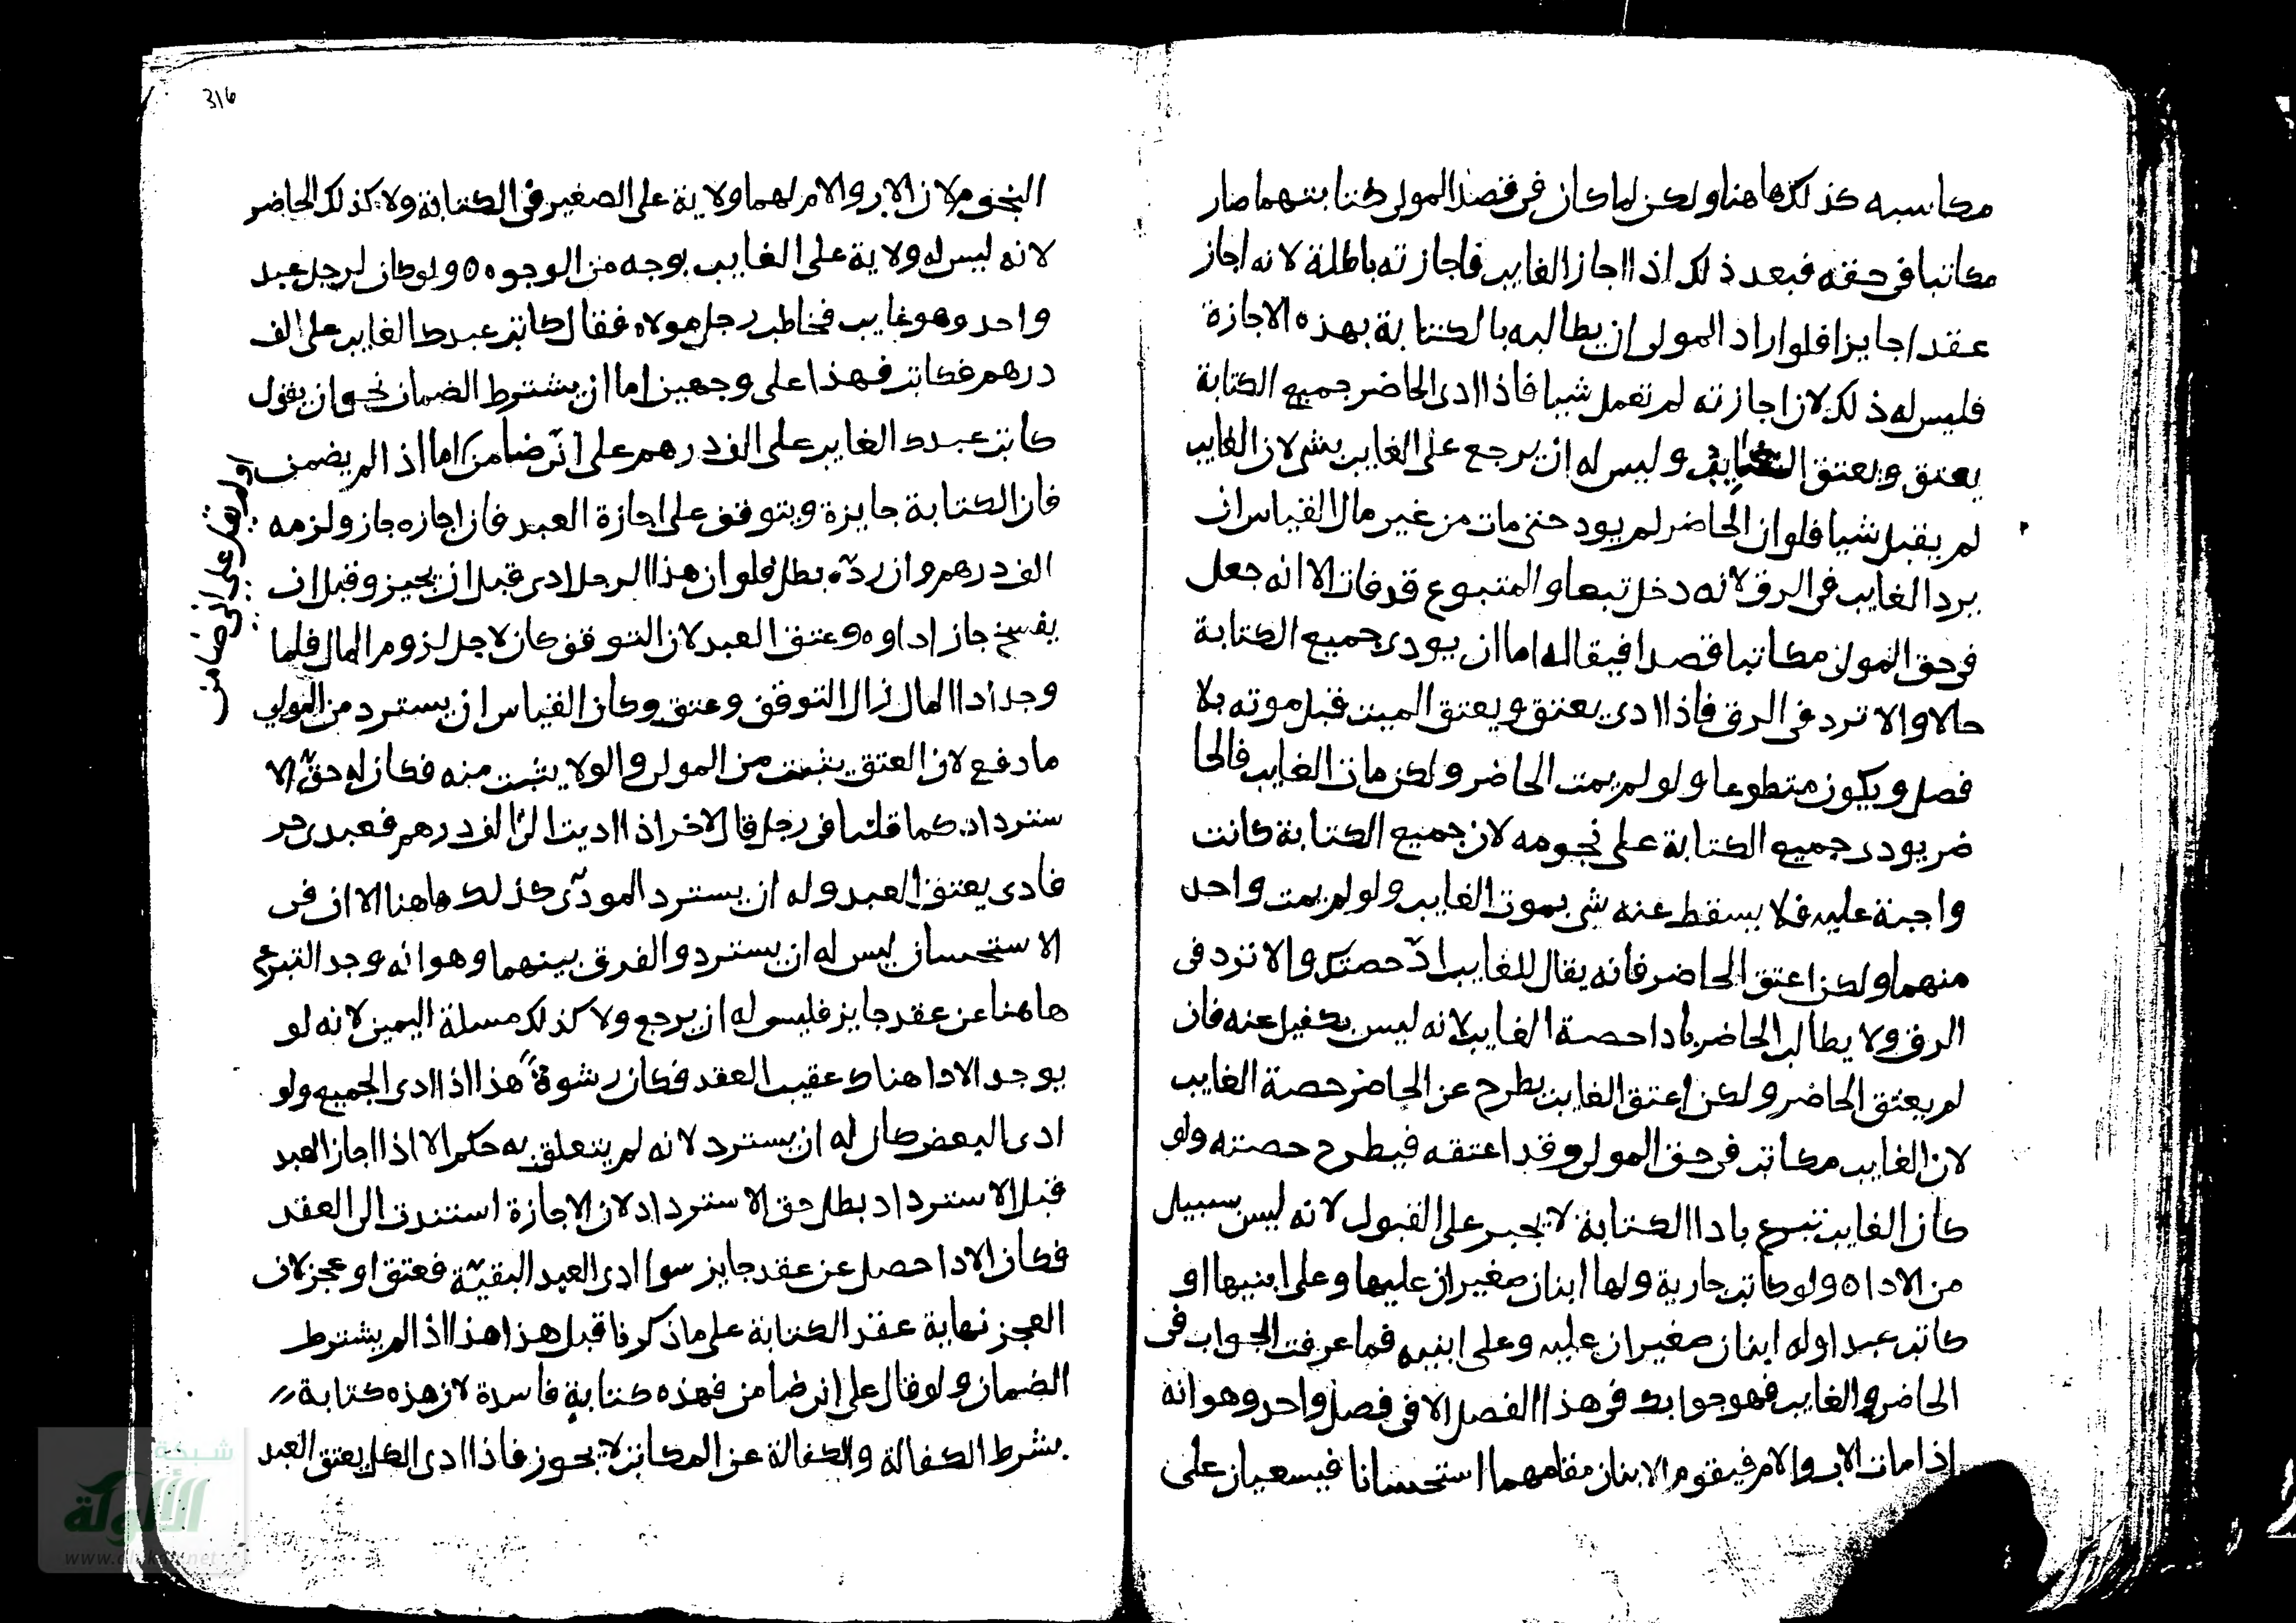 مكاسبه كذلك هاهنا ولكن لما كان في قصد المولى كتابتهما صار
مكاتبا في حقه فبعد ذلك اذا اجاز الغايب فاجازته باطلة لانه اجاز
عقدا جايزا فلو اراد المولى ان يطالبه بالكتابة بهذه الاجازة
فليس له ذلك لان اجازته لم تعمل شيا فاذا ادى الحاضر جميع الكتابة
يعتق ويعتق الغايب وليس له ان يرجع على الغايب بشي لان الغايب
لم يقبل شيا فلو ان الحاضر لم يود حتى مات من غير مال القياس ان
يرد الغايب في الرق لانه دخل تبعا والمتبوع قد فات الا انه جعل
في حق المولى مكاتبا قصدا فيقال له اما ان يودي جميع الكتابة
حالا والا ترد في الرق فاذا ادى يعتق ويعتق الميت قبل موته بلا
فصل ويكون متطوعا ولو لم يمت الحاضر ولكن مات الغايب فالحا
ضر يودي جميع الكتابة على نجومه لان جميع الكتابة كانت
واجبة عليه فلا يسقط عنه شي بموت الغايب ولو لم يمت واحد
منهما ولكن اعتق الحاضر فانه يقال للغايب ادّ حصتك والا ترد في
الرق ولا يطالب الحاضر بادا حصة الغايب لانه ليس بكفيل عنه فان
لم يعتق الحاضر ولكن اعتق الغايب يطرح عن الحاضر حصة الغايب
لان الغايب مكاتب في حق المولى وقد اعتقه فيطرح حصته ولو
كان الغايب تبرع بادا الكتابة لا يجبر على القبول لانه ليس سبيل
من الادا ٥ ولو كاتب جارية ولها ابنان صغيران عليها وعلى ابنيها او
كاتب عبدا وله ابنان صغيران عليه وعلى ابنيه فما عرفت الجواب في
الحاضر والغايب فهو جوابك في هذا الفصل الا في فصل واحد وهو انه
اذا مات الاب والام فيقوم الابنان مقامهما استحسانا فيسعيان على
316
النجوم لان الاب والام لهما ولاية على الصغير في الكتابة ولا كذلك الحاضر
لانه ليس له ولاية على الغايب بوجه من الوجوه ٥ ولو كان لرجل عبد
واحد وهو غايب فخاطب رجل مولاه فقال كاتب عبدك الغايب على الف
درهم فكاتب فهذا على وجهين اما ان يشترط الضمان نحو ان يقول
كاتب عبدك الغايب على الف درهم على انّي ضامن اما اذا لم يضمن
او لم يقل على اني ضامن
فان الكتابة جايزة ويتوقف على اجازة العبد فان اجازه جاز ولزمه
الف درهم وان ردّه بطل فلو ان هذا الرجل ادى قبل ان يجيز وقبل ان
يفسخ جاز اداوه وعتق العبد لان التوقف كان لاجل لزوم المال فلما
وجد ادا المال زال التوقف وعتق وكان القياس ان يسترد من المولى
ما دفع لان العتق يثبت من المولى والولا يثبت منه فكان له حقّ الا
سترداد كما قلنا في رجل قال لاخر اذا اديت اليّ الف درهم فعبدي حر
فادى يعتق العبد وله ان يسترد المودّى كذلك هاهنا الا ان في
الاستحسان ليس له ان يسترد والفرق بينهما وهو انه وجد التبرع
هاهنا عن عقد جايز فليس له ان يرجع ولا كذلك مسلة اليمين لانه لو
يوجد الادا هناك عقيب العقد فكان رشوةً هذا اذا ادى الجميع ولو
ادى البعض كان له ان يسترد لانه لم يتعلق به حكم الا اذا اجاز العبد
قبل الاسترداد بطل حق الاسترداد لان الاجازة استندت الى العقد
فكان الادا حصل عن عقد جايز سوا ادى العبد البقيّة فعتق او عجز لان
العجز نهاية عقد الكتابة على ما ذكرنا قبل هذا هذا اذا لم يشترط
الضمان ولو قال على اني ضامن فهذه كتابة فاسدة لان هذه كتابة
بشرط الكفالة والكفالة عن المكاتب لا يجوز فاذا ادى الكل يعتق العبد
شبكة
الألوكة
www.alukah.net